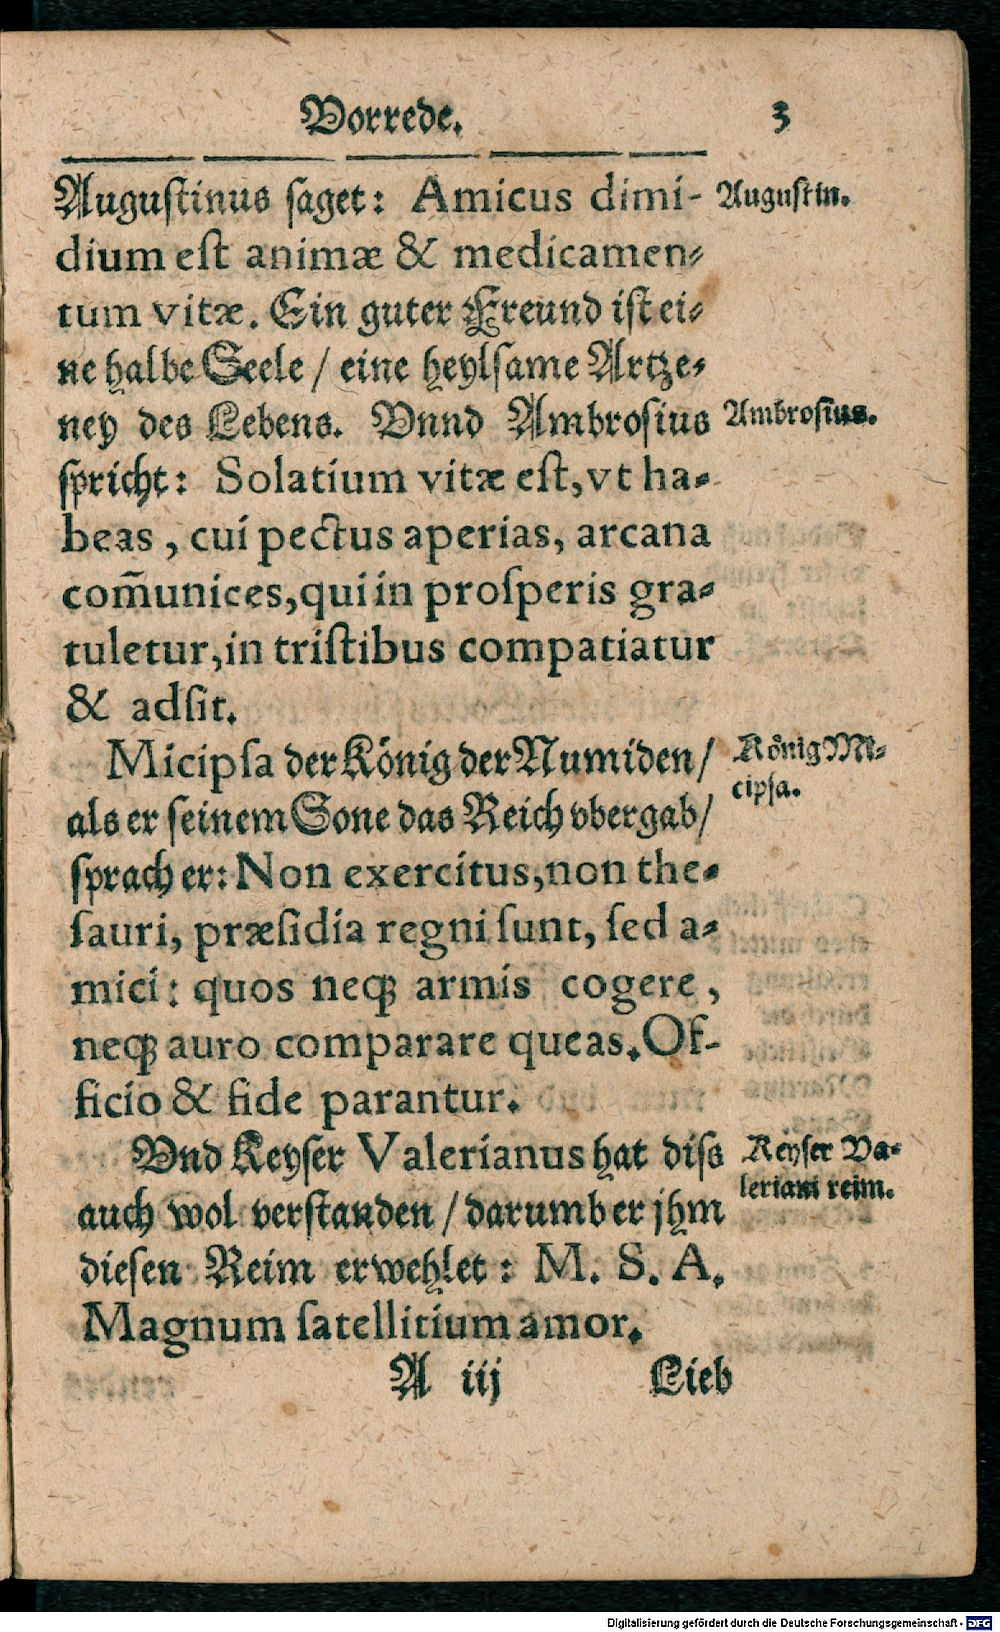 Vorrede. 3
Auguſtinus ſaget: Amicus dimi- Auguſtin.
dium eſt animæ & medicamen-
tum vitæ. Ein guter Freund iſt ei-
ne halbe Seele / eine heylſame Artze-
ney des Lebens. Vnnd Ambroſius Ambroſius.
ſpricht: Solatium vitæ eſt, vt ha-
beas, cui pectus aperias, arcana
com̃unices, qui in proſperis gra-
tuletur, in triſtibus compatiatur
& adſit.
Micipſa der König der Numiden / König Mi-
als er ſeinem Sone das Reich vbergab / cipſa.
ſprach er: Non exercitus, non the-
ſauri, præſidia regni ſunt, ſed a-
mici: quos neqꝫ armis cogere,
neqꝫ auro comparare queas. Of-
ficio & fide parantur.
Vnd Keyſer Valerianus hat diſs Keyſer Va-
auch wol verſtanden / darumb er jhm leriani reim.
dieſen Reim erwehlet: M. S. A.
Magnum ſatellitium amor.
A iij Lieb
Digitalisierung gefördert durch die Deutsche Forschungsgemeinschaft - DFG